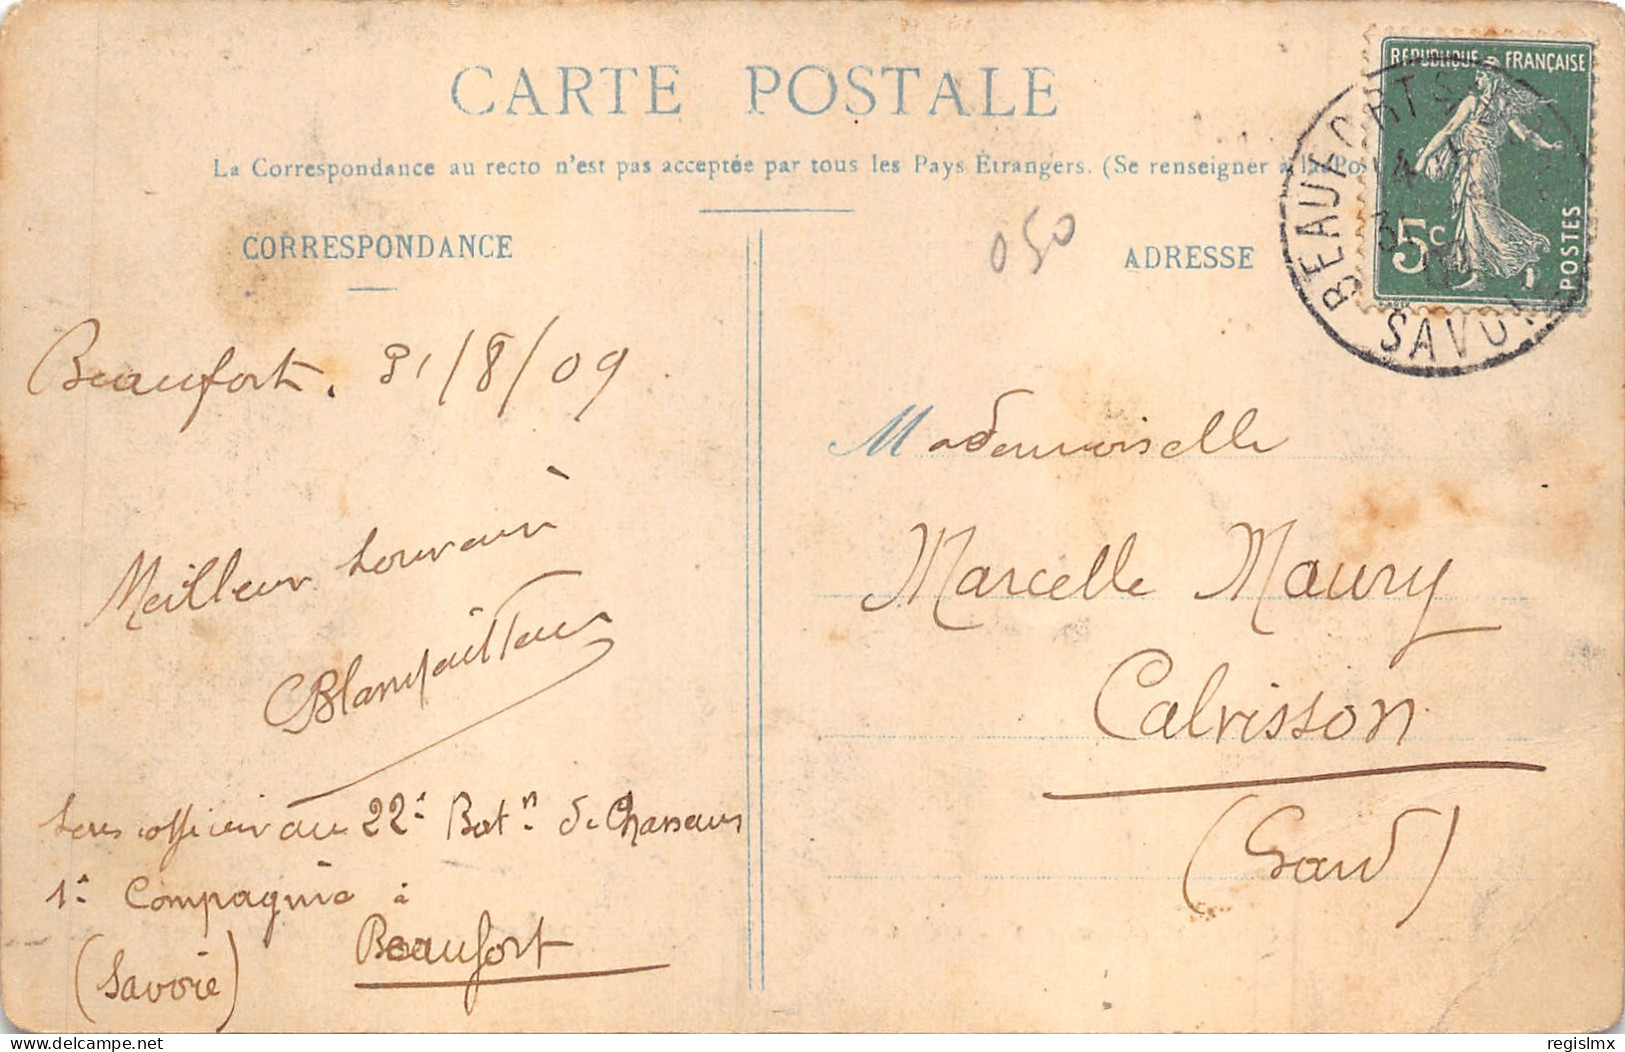 CARTE POSTALE
La Correspondance au recto n'est pas acceptée par tous les Pays Étrangers. (Se renseigner à la Po
CORRESPONDANCE
ADRESSE
050
REPUBLIQUE FRANÇAISE
5c
POSTES
BEAUFORT S
SAVOI
Beaufort. 31/8/09
Meilleur souvenir
Sous officier au 22e Batn. de Chasseurs
1e Compagnie à
Beaufort
(Savoie)
Mademoiselle
Marcelle Maury
Calvisson
(Gard)
delcampe.net
regislmx